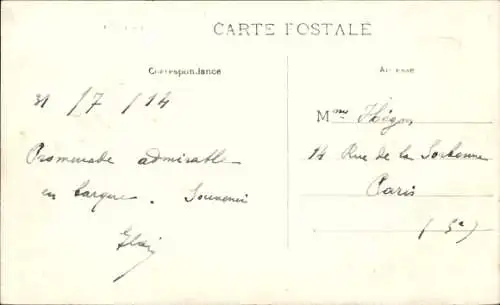 CARTE POSTALE
Correspondance
Adresse
31 / 7 / 14
Promenade admirable
en barque. Souvenir
M me
14 Rue de la Sorbonne
Paris
(5e)